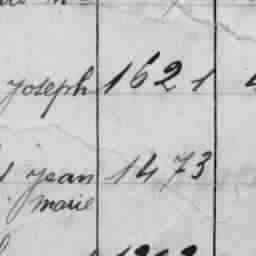 joseph 1621
jean 1473
marie